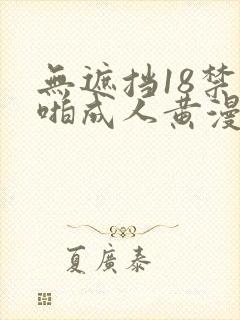 無遮挡18禁
啪成人黄漫
夏廣泰